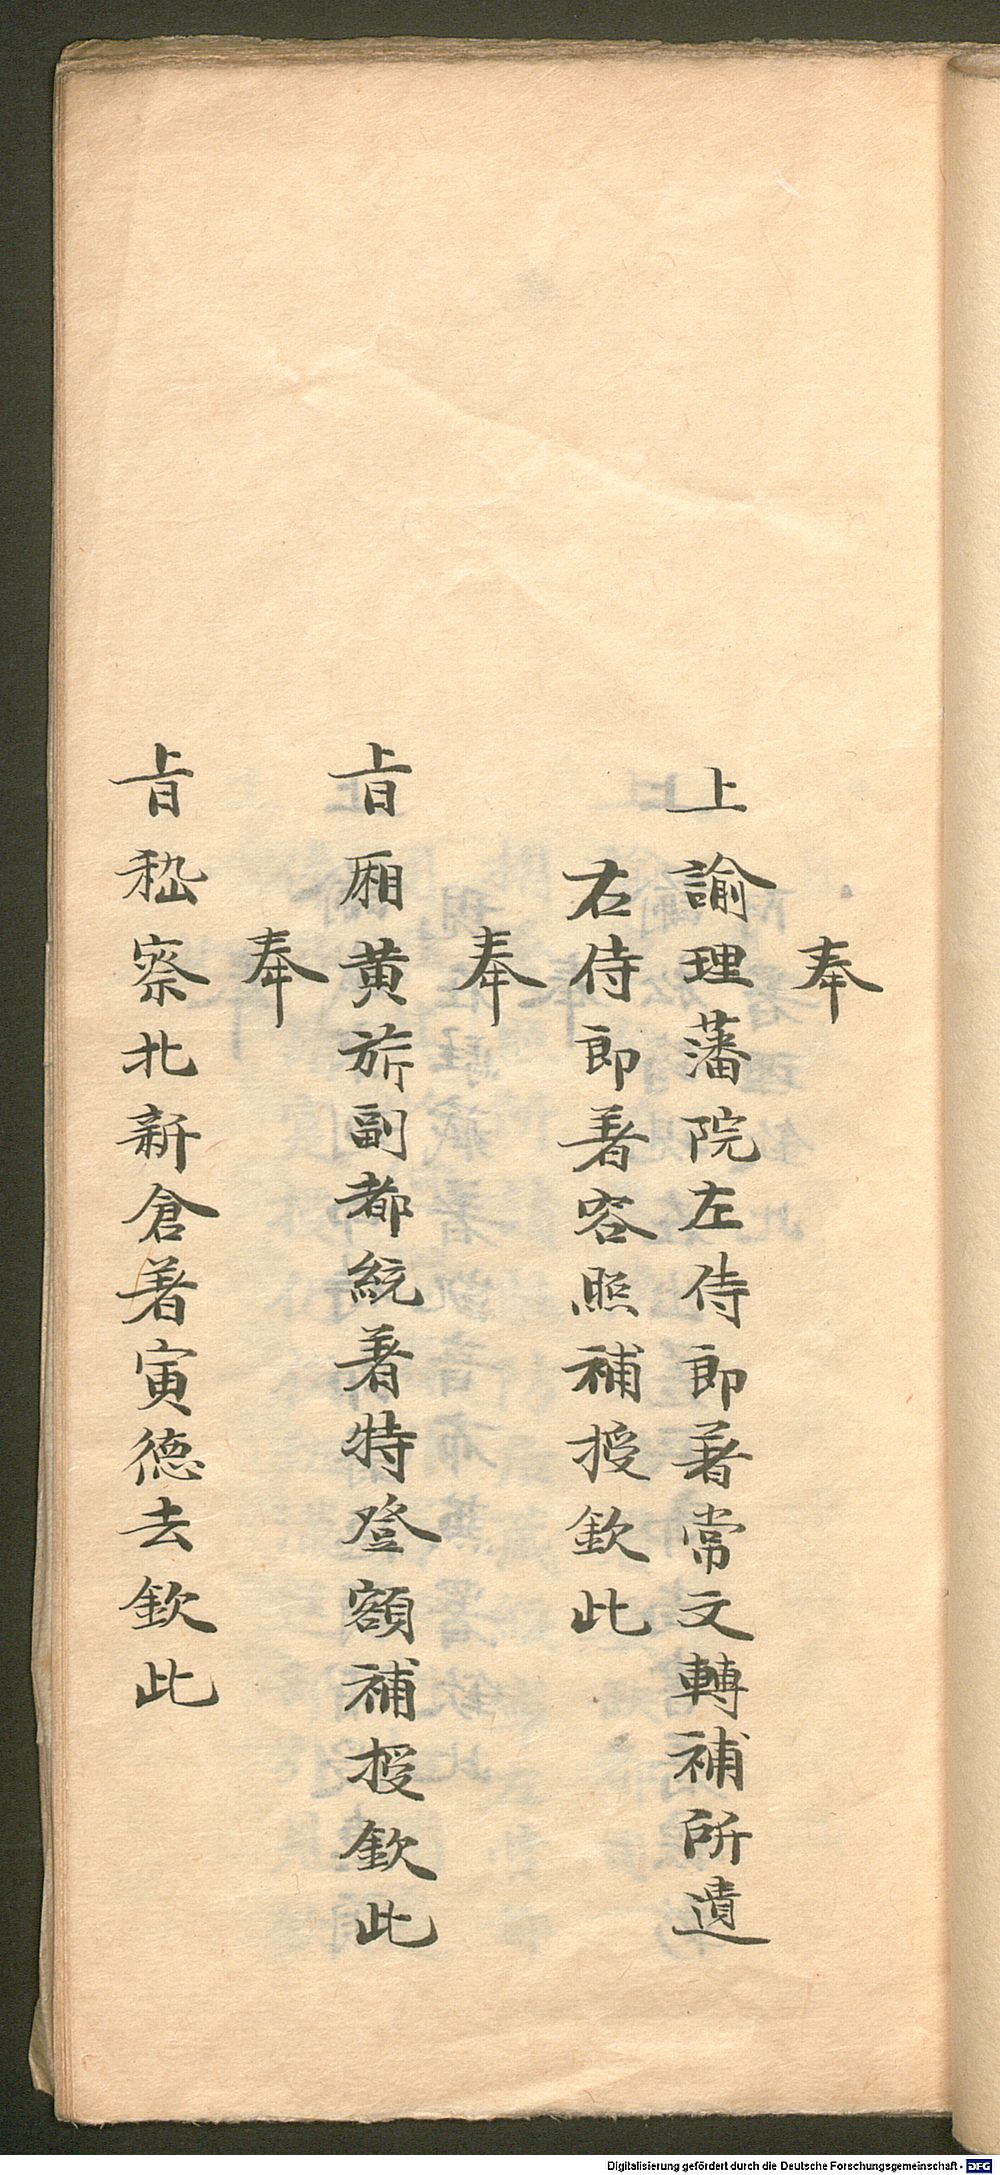 奉
上諭理藩院左侍郎著常文轉補所遺
右侍郎著容照補授欽此
奉
旨厢黄旂副都統著特登額補授欽此
奉
旨嵇察北新倉著寅德去欽此
Digitalisierung gefördert durch die Deutsche Forschungsgemeinschaft - DFG